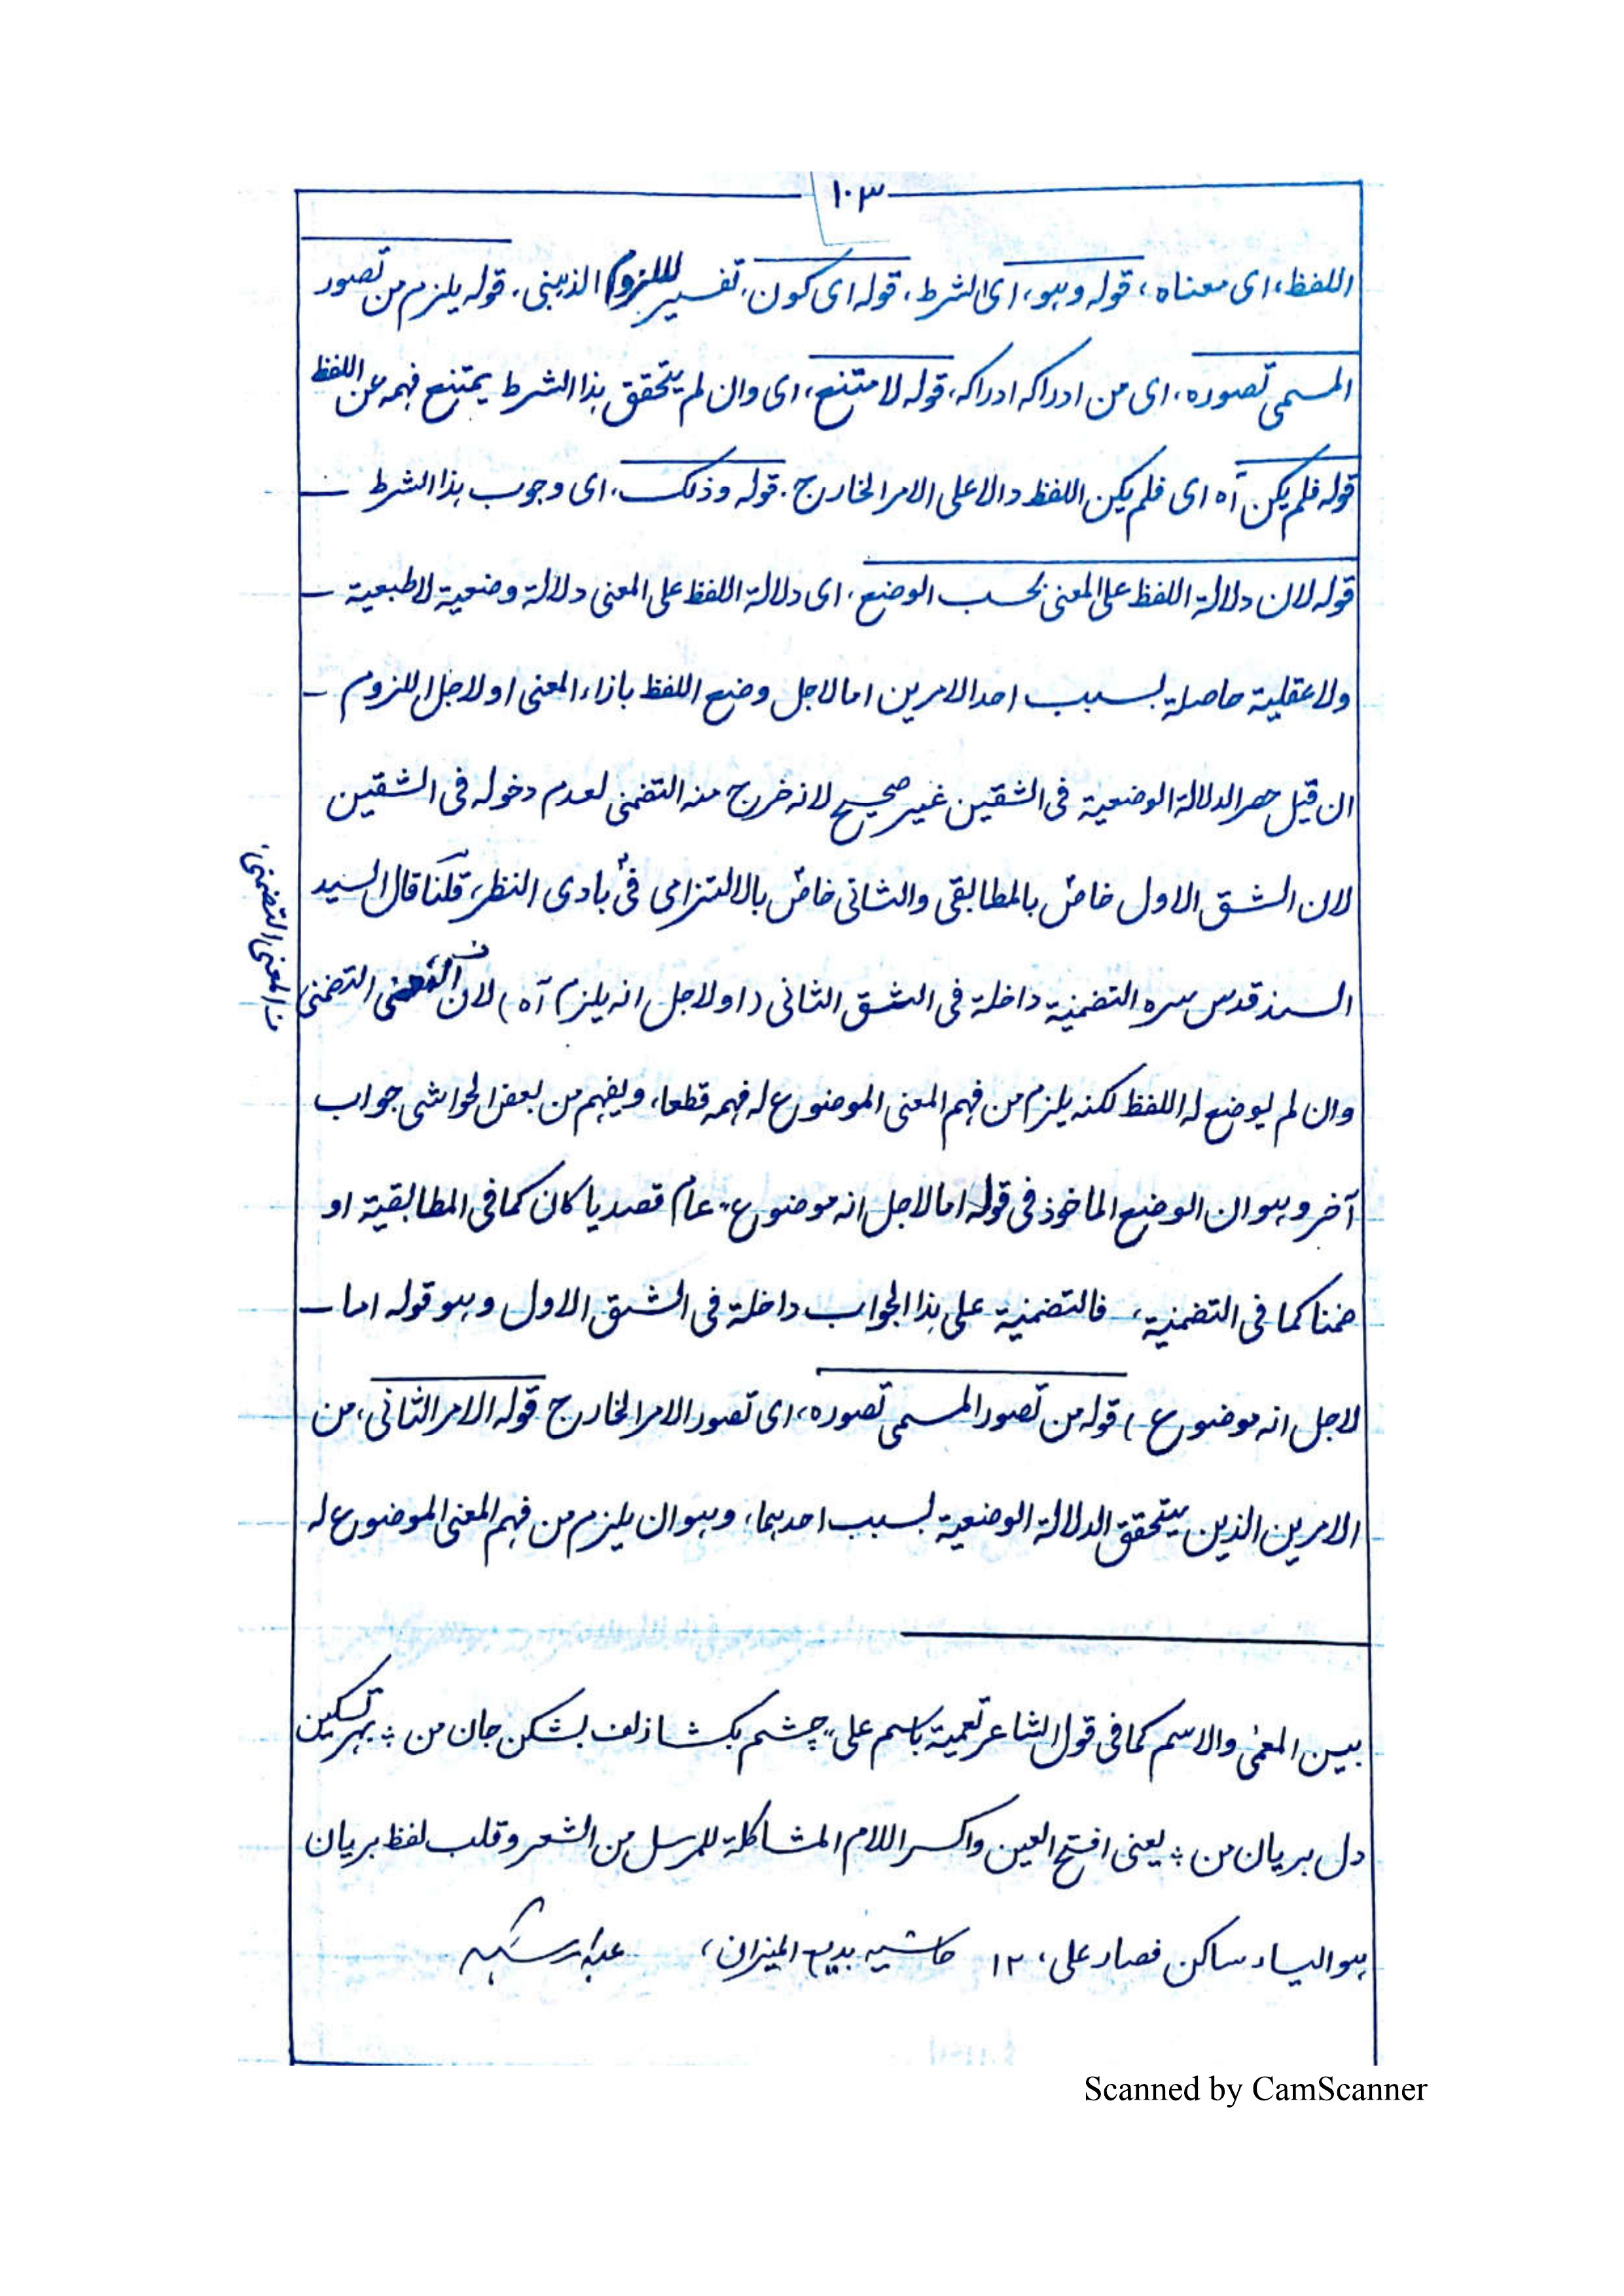 ١٠٣
اللفظ، ای معناه، قوله وهو، ای الشرط، قوله ای کون، تفسیر للزوم الذهنی، قوله یلزم من تصور
المسمی تصوره، ای من ادراکه ادراکه، قوله لامتنع، ای وان لم یتحقق هذا الشرط یمتنع فهمه عن اللفظ
قوله فلم یکن آه ای فلم یکن اللفظ دالا علی الامر الخارج. قوله وذلک، ای وجوب هذا الشرط ــ
قوله لان دلالة اللفظ علی المعنی بحسب الوضع، ای دلالة اللفظ علی المعنی دلالة وضعیة لا طبعیة ــ
ولا عقلیة حاصلة بسبب احد الامرین اما لاجل وضع اللفظ بازاء المعنی او لاجل اللزوم ــ
ان قیل حصر الدلالة الوضعیة فی الشقین غیر صحیح لانه خرج منه التضمنی لعدم دخوله فی الشقین
لان الشق الاول خاص بالمطابقی والثانی خاص بالالتزامی فی بادی النظر، قلنا قال السید
السند قدس سره التضمنیة داخلة فی الشق الثانی (او لاجل انه یلزم آه) لان المعنی التضمنی
المعنی التضمنی
وان لم یوضع له اللفظ لکنه یلزم من فهم المعنی الموضوع له فهمه قطعا، ویفهم من بعض الحواشی جواب
آخر وهو ان الوضع الماخوذ فی قوله اما لاجل انه موضوع، عام قصدیا کان کما فی المطابقیة او
ضمنا کما فی التضمنیة، فالتضمنیة علی هذا الجواب داخلة فی الشق الاول وهو قوله اما ــ
لاجل انه موضوع) قوله من تصور المسمی تصوره، ای تصور الامر الخارج قوله الامر الثانی، من
الامرین الذین یتحقق الدلالة الوضعیة بسبب احدهما، وهو ان یلزم من فهم المعنی الموضوع له
بین المعمی والاسم کما فی قول الشاعر تعمیة باسم علی، چشم بکشا زلف بشکن جان من ؞ بهر تسکین
دل بریان من ؞ یعنی افتح العین واکسر اللام المشاکلة للمرسل من الشعر وقلب لفظ بریان
هو الیاء ساکن فصار علی، ١٢ حاشیه بدیع المیزان،
Scanned by CamScanner